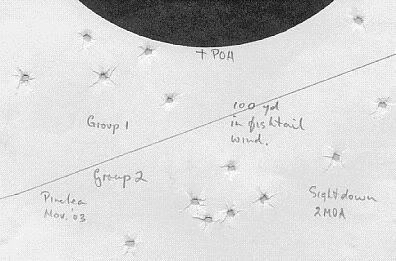 + POA
100 yd
in fishtail
wind.
Group 1
Group 2
Pinelea
Nov. '03
Sight down
2 MOA